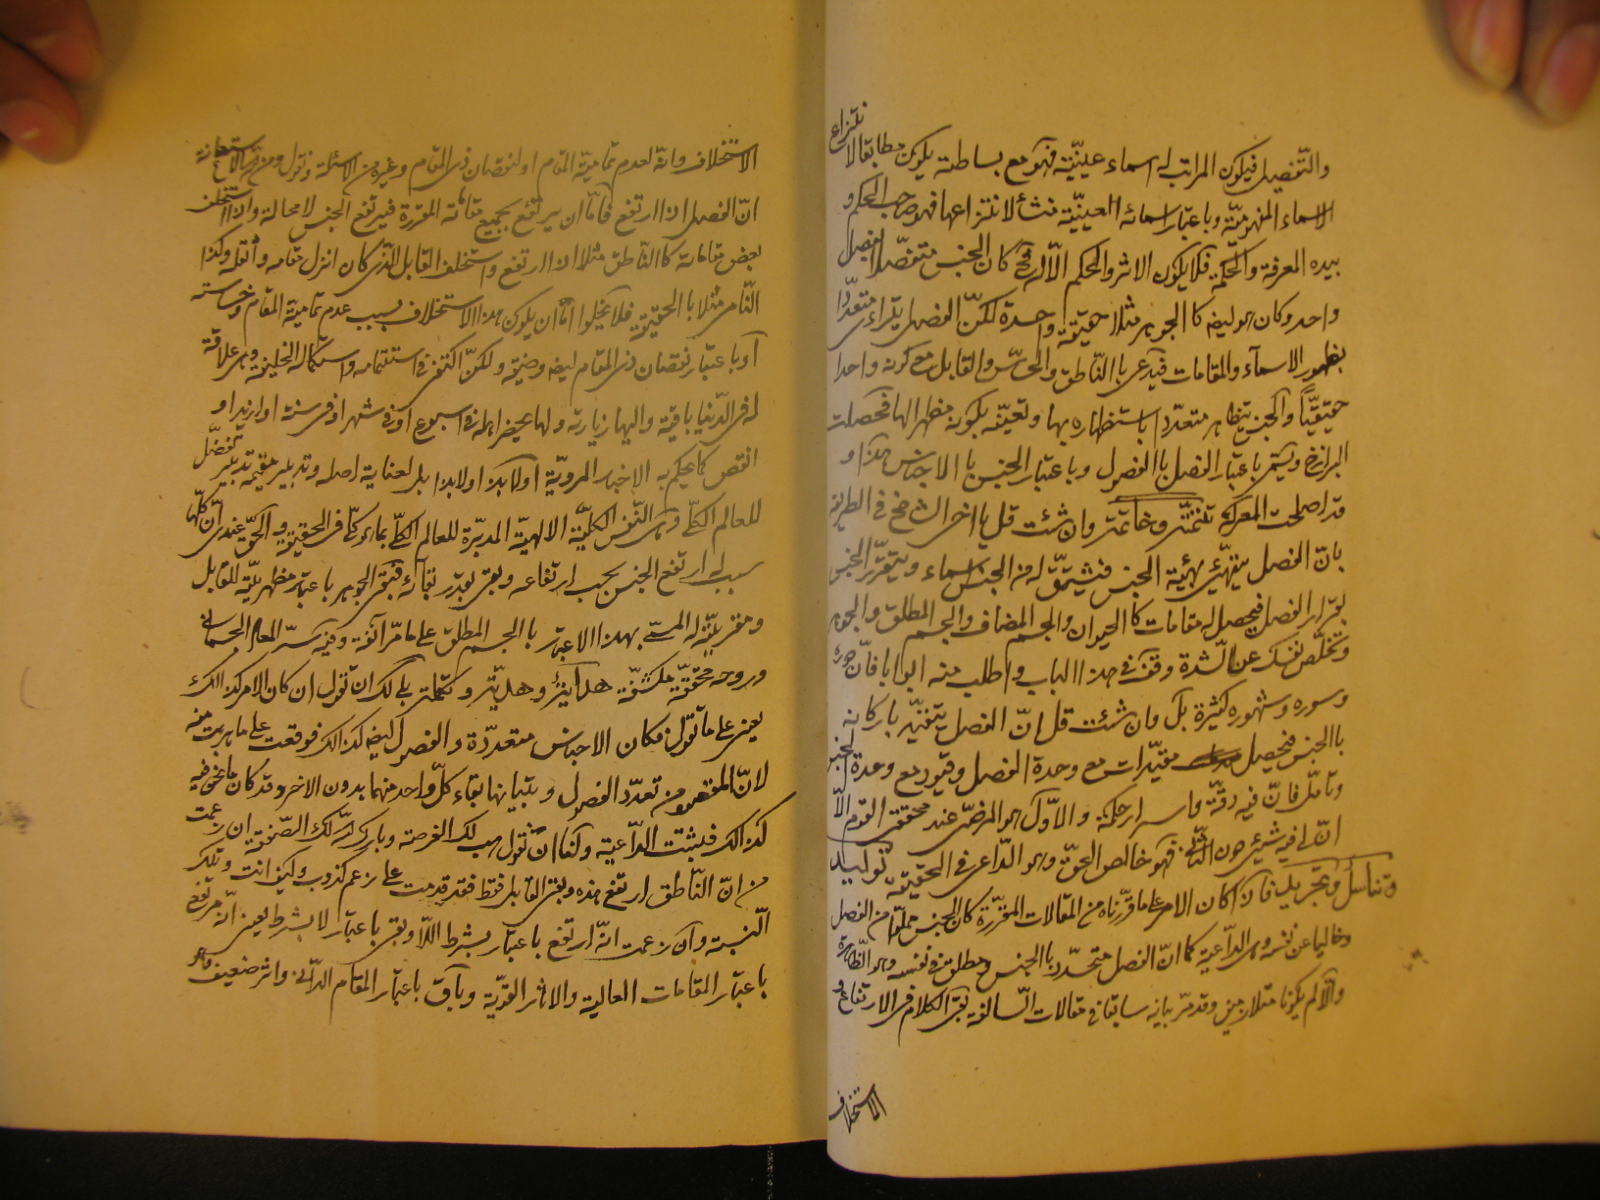 والتفصيل فيكون المراتب له اسماء عينيّة فهو مع بساطته يكون مطابقا لانتزاع
الاسماء المفهوميّة وباعتبار اسمائه العينيّة منشأ لانتزاعها فهو صاحب الحكم و
بيده المعرفة والحكمة فلا يكون الاثر والحكم الّا له كان الجنس متفصّلا الفصل
واحد وكان هو ايضا كالجوهر مثلا حقيقة واحدة لكنّ الفصل يتراءى متعدّدا
بظهور الاسماء والمقامات فيدعى بالناطق والحسّاس والقابل مع كونه واحدا
حقيقيّا والجنس بمظاهر متعدّدا باستظهاره بها وتعيّنه بكونه مظهرا لها فحصلت
البرازخ ويسمّى باعتبار الفصل بالفصول وباعتبار الجنس بالاجناس هكذا و
قد اصلحت المعركة تتمّة وخاتمة وان شئت قل بالخر الشامخ في الطريقة
بانّ الفصل يتهيّئ بهيئة الجنس فيشتقّ له من الجنس اسماء ويتقرّر الجنس
بقرار الفصل فيحصل له مقامات كالحيوان والجسم المضاف والجسم المطلق والجوهر
وتخلّص نفسك عن الشدة وقف في هذا الباب واطلب منه ابوابا فانّ
وسوره وشهوره كثيرة بل وان شئت قل انّ الفصل يتقيّد باركانه
بالجنس فيحصل مقيّدات مع وحدة الفصل وقيود مع وحدة الجنس
وتأمّل فانّ فيه دقّة واسرار حكمة والاوّل هو المرضيّ عند محققي القوم الّا
انّ ما فيه شيئ دون الثاني فهو خالص الحقّ وهو الداعي في الحقيقة توليد
وتناسل وتحريك فاذا كان الامر على ما قرّرناه من المقالات المقرّرة كان الجنس مملوّا من الفصل
وخاليا عن نفسه وهي الداعية كما انّ الفصل متحدّد بالجنس ومطلق في نفسه وهو الظاهرة
والّا لم يكونا متلازمين وقد مرّ بيانه سابقا في مقالات السالفة بقى الكلام في الارتفاع و
الاستخلاف
الاستخلاف وانّه لعدم تماميّة المقام او لنقصان ذي المقام وغيره من الاسئلة ونقول ومن الله الاستعانة
انّ الفصل اذا ارتفع فامّا ان يرتفع بجميع مقاماته المقرّرة فيرتفع الجنس لا محالة واذا استخلف
بعض مقاماته كالناطق مثلا اذا ارتفع واستخلف القابل الذي كان انزل مقامه واثقله وكذا
النامي مثلا بالحقيقة فلا يخلوا امّا ان يكون هذا الاستخلاف بسبب عدم تماميّة المقام وخسّته
او باعتبار نقصان ذي المقام ايضا وضيقه ولكنّ اكتفى في استتمامه واستكماله الخليفة وهي علاقة
له في الدنيا باقية واليها زيارته ولها يحضر اهله في اسبوع او في شهر او في سنة او ازيد او
انقص كما يحكم به الاخبار المرويّة اولا كذا ولا بذا بل لعناية اصله وتدبير مقيمه تدبير تفضّل
للعالم الكلّي وهي النفس الكليّة الالهيّة المدبّرة للعالم الكلّي بماء كلّي في الحقيقة والحقّ عندي انّ كلّها
سبب له ارتفع الجنس بحسب ارتفاعه وبقى بقدر بقائه فبقى الجوهر باعتبار مظهريّة للقابل
ومقرّيّته له المسمّى بهذا الاعتبار بالجسم المطلق على ما مرّ آنفا وفيه سرّ المعاد الجسماني
وروحه محقّقة مكشفة هداية وهديّة وتكملة بل لك ان تقول ان كان الامر كذالك
يعني على ما تقول فكان الاجناس متعدّدة والفصول ايضا كذالك فوقعت على ما هربت منه
لانّ المقصود من تعدّد الفصول وتباينها بقاء كلّ واحد منهما بدون الاخر وقد كان ما نحن فيه
كذالك فيثبت الداعية ولنا ان نقول هب لك الفرصة وبارك الله لك الصفقة ان زعمت
من انّ الناطق ارتفع هذه وبقى القابل فقط فقد قدمت على زعم كذوب وكيف انت وتلك
النسبة وان زعمت انّه ارتفع باعتبار بشرط اللّا وبقى باعتبار لا بشرط يعني انّه مرتفع
باعتبار المقامات العالية والاثار القويّة وباق باعتبار المقام الداني واثر ضعيف وهو